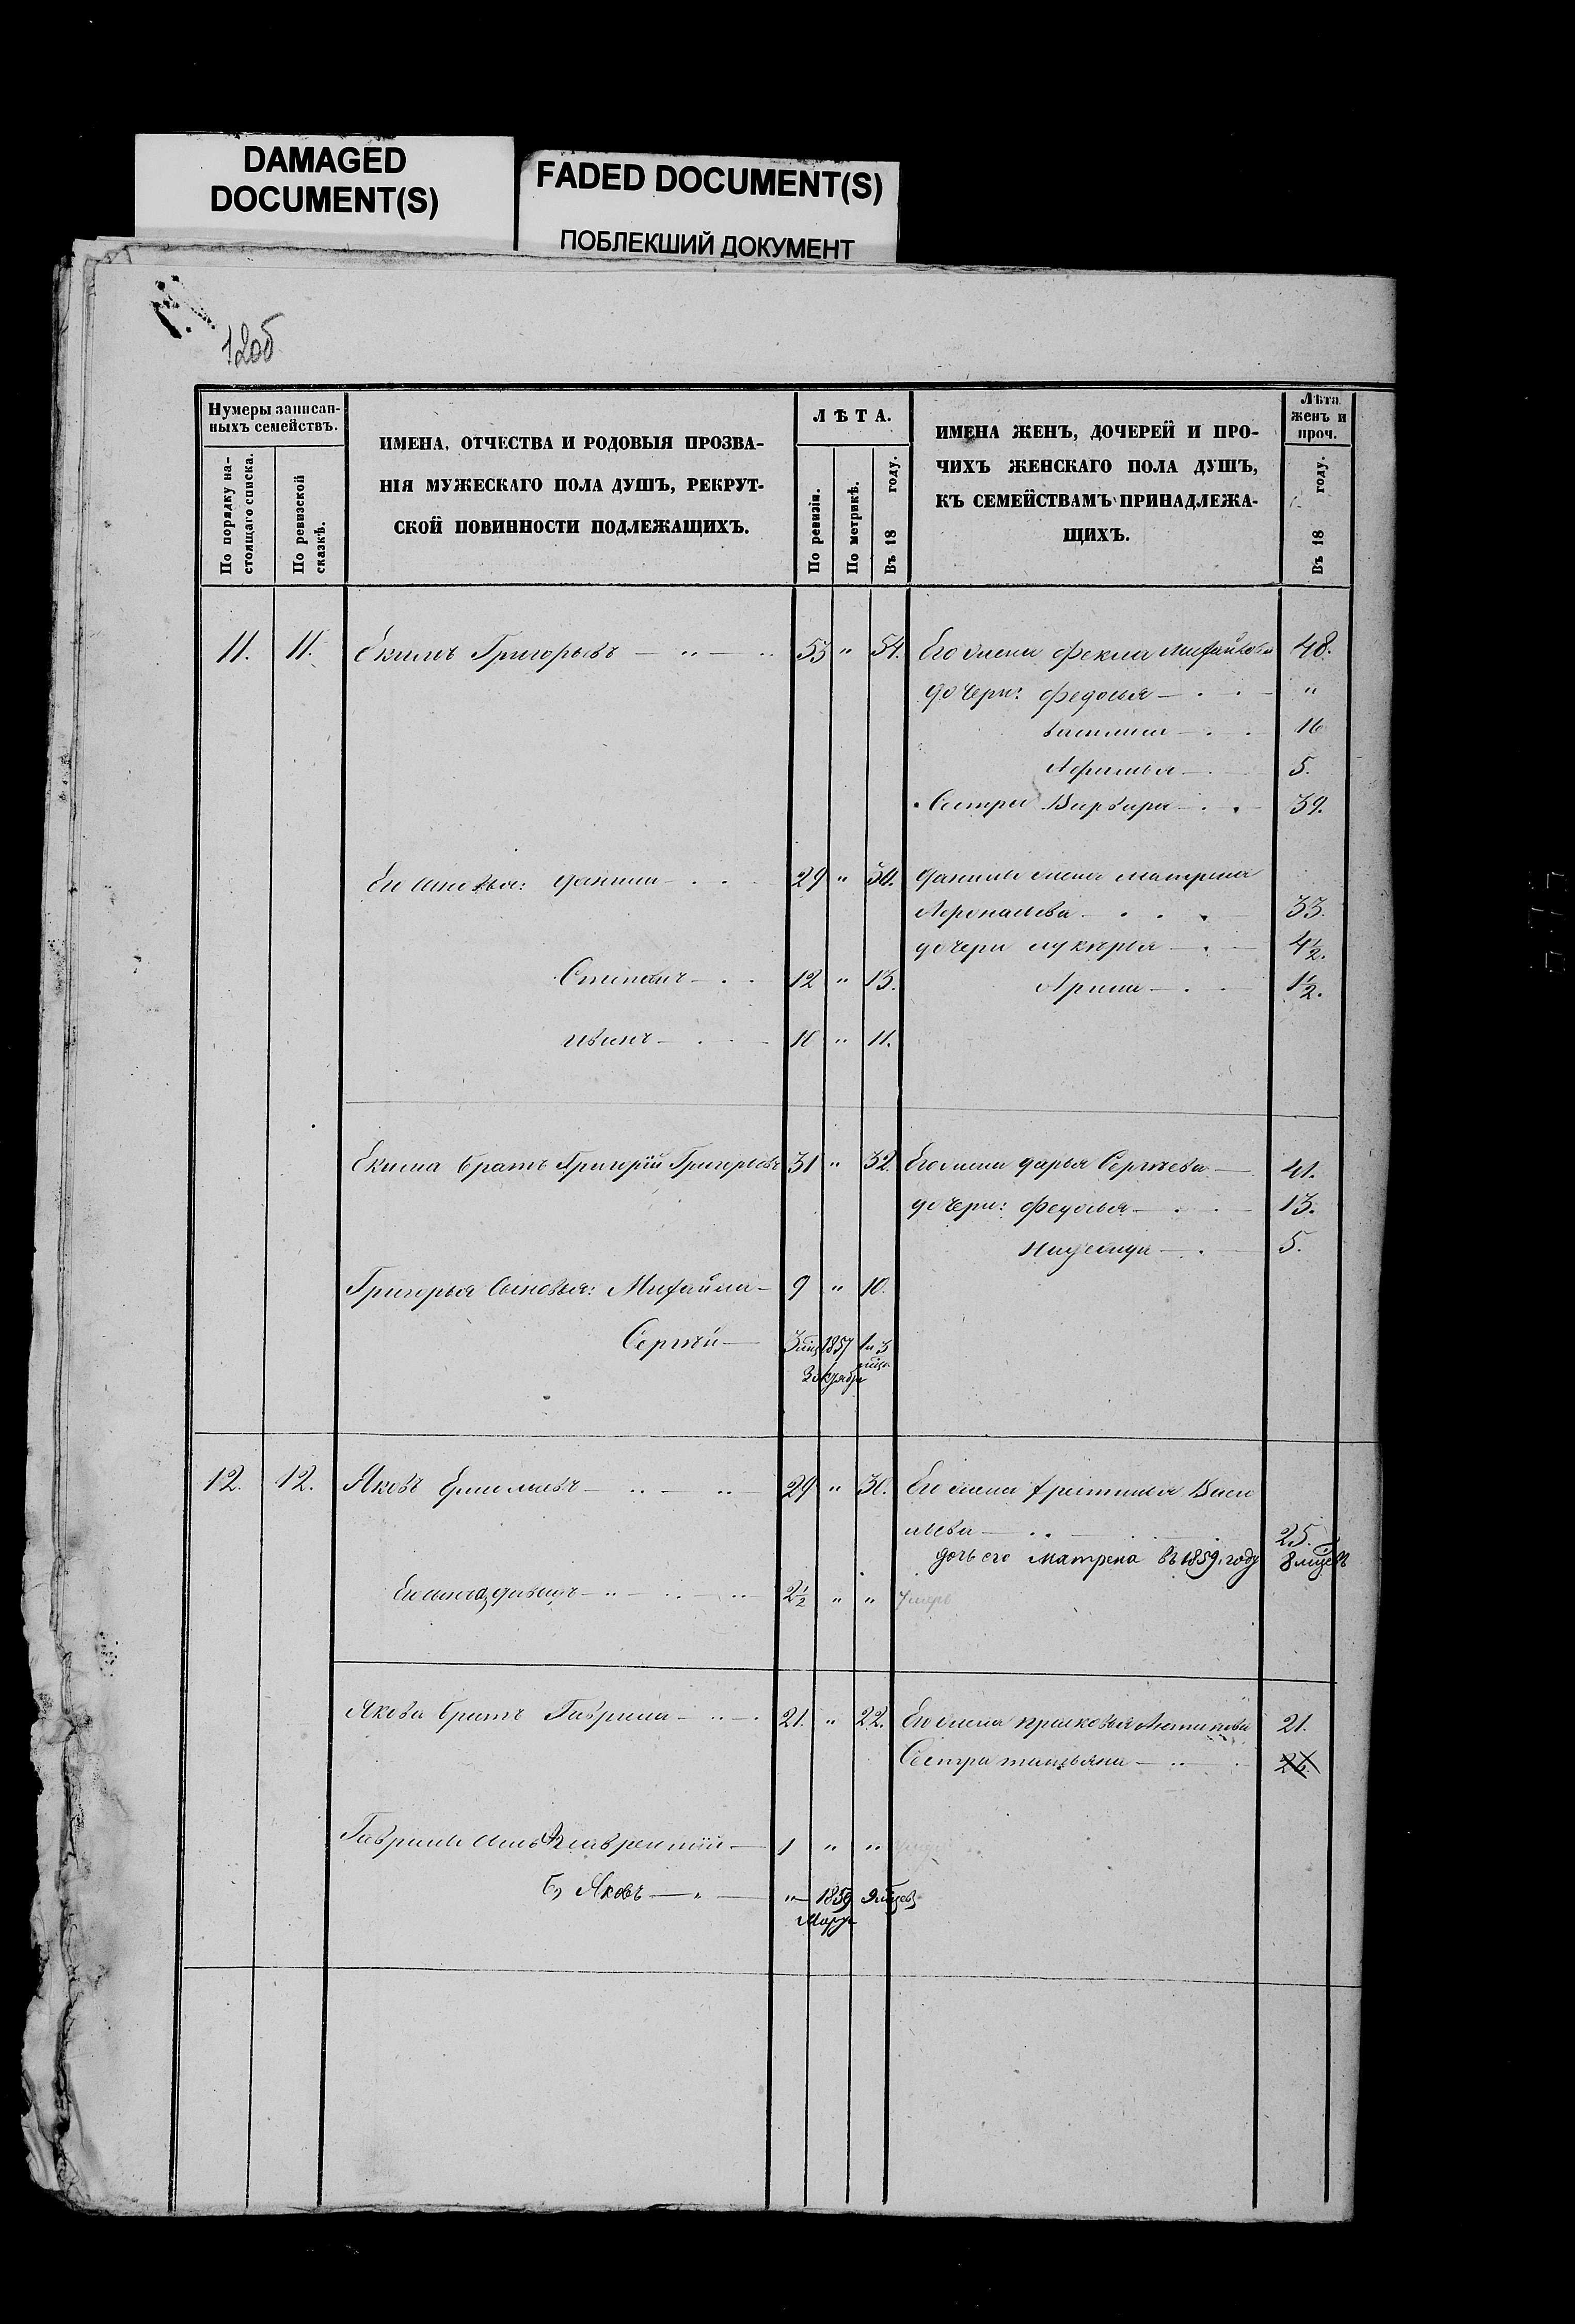 DAMAGED
DOCUMENT(S)
FADED DOCUMENT(S)
ПОБЛЕКШИЙ ДОКУМЕНТ
12об
Нумеры записан-
ныхъ семействъ.
По порядку на-
стоящаго списка.
По ревизской
сказкѣ.
ИМЕНА, ОТЧЕСТВА И РОДОВЫЯ ПРОЗВА-
НІЯ МУЖЕСКАГО ПОЛА ДУШЪ, РЕКРУТ-
СКОЙ ПОВИННОСТИ ПОДЛЕЖАЩИХЪ.
ЛѢТА.
По ревизіи.
По метрикѣ.
Въ 18 году.
ИМЕНА ЖЕНЪ, ДОЧЕРЕЙ И ПРО-
ЧИХЪ ЖЕНСКАГО ПОЛА ДУШЪ,
КЪ СЕМЕЙСТВАМЪ ПРИНАДЛЕЖА-
ЩИХЪ.
Лѣта
женъ и
проч.
Въ 18 году.
11. 11. Екимъ Григорьевъ — " — " 53 " 54. Его жена Фекла Михайлова 48.
дочери: Федосья — "
Василиса — 16
Афимья — 5.
Сестра Варвара — 39.
Ег сыновья: Данила — 29 " 30. Данилы жена Матрена
Афонасьева 33.
дочери Лукерья — 4½.
Степанъ — 12 " 13. Арина — 1½.
Иванъ — 10 " 11.
Екима братъ Григорій Григорьевъ 31 " 32. Его жена Дарья Сергѣева — 41.
дочери: Федосья — 13.
Надежда — 5.
Григорья сыновья: Михайла — 9 " 10.
Сергѣй — 3 мѣц 1857 1 и 3
мѣца
12. 12. Яковъ Ермолаевъ — " — " 29 " 30. Его жена Фетинья Васи
льева — " 25.
дочь его Матрена въ 1859. году 8 мѣцевъ
Ег сынъ Давыдъ — " — " 2½ " " умеръ
Якова братъ Гаврила — " — 21. " 22. Его жена Прасковья Антипова 21.
Сестра Татьяна — "
Гаврилы сынъ Лаврентій — 1 " "
б, Яковъ — " — " 1859 9 мѣцевъ
Март